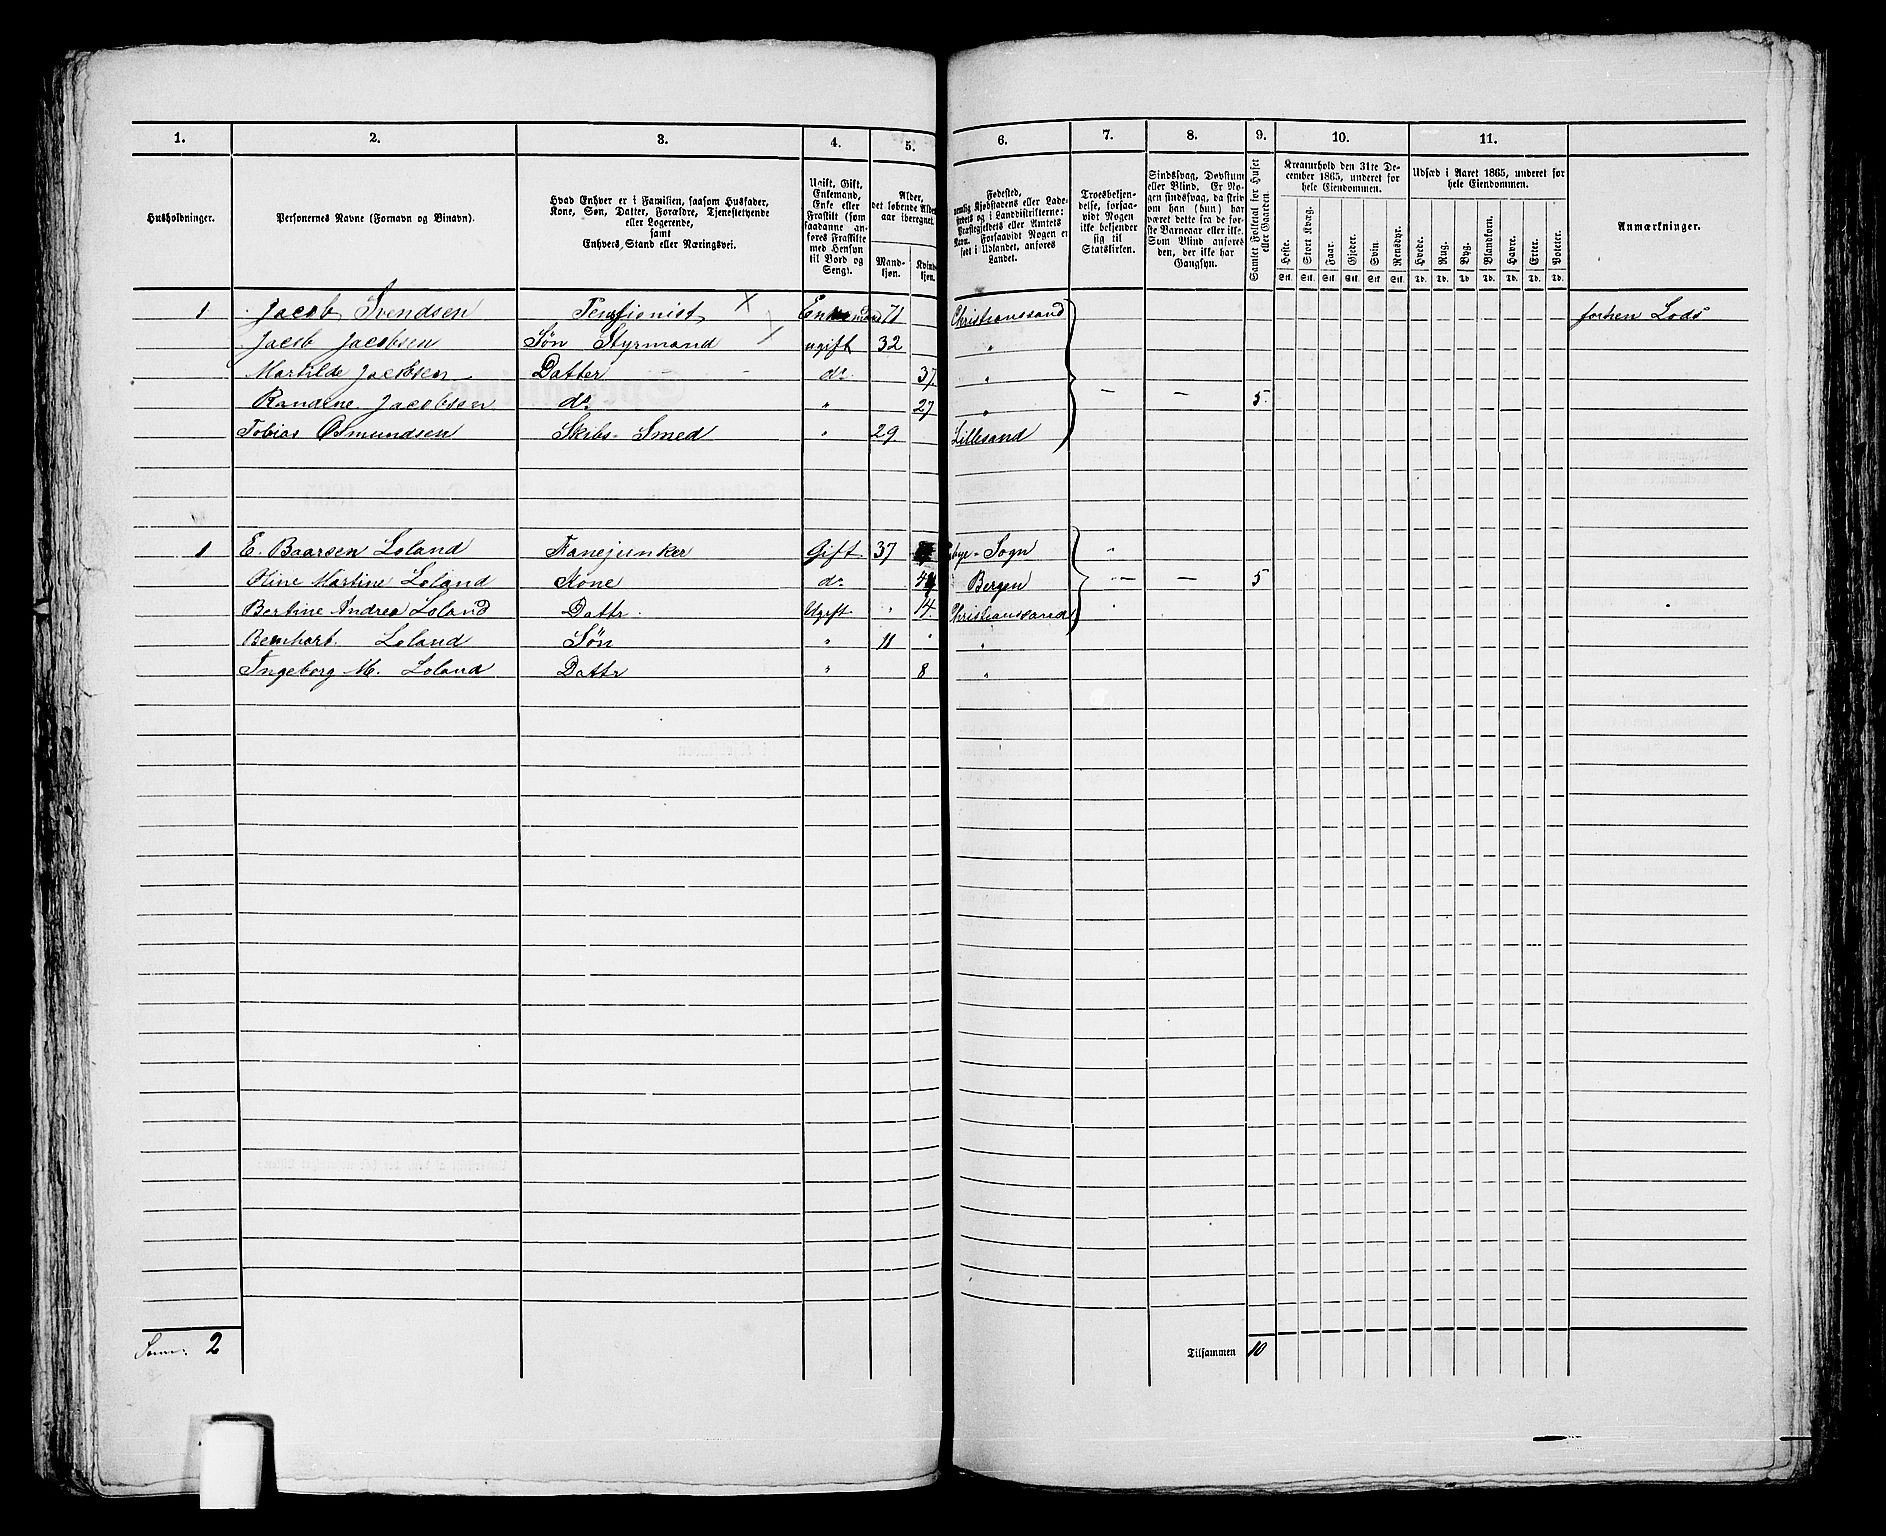 1. 2. 3. 4. 5. 6. 7. 8. 9. 10. 11.
Husholdninger.
Personernes Navne (Fornavn og Binavn).
Hvad Enhver er i Familien, saasom Husfader,
Kone, Søn, Datter, Forældre, Tjenestetyende
eller Logerende,
samt
Enhvers Stand eller Næringsvei.
Ugift, Gift,
Enkemand,
Enke eller
Fraskilt (som
saadanne an-
føres Fraskilte
med Hensyn
til Bord og
Seng).
Alder,
det løbende Alders-
aar iberegnet.
Mand-
kjøn.
Kvinde-
kjøn.
Fødested,
nemlig Kjøbstadens eller Lade-
stedets og i Landdistrikterne:
Præstegjeldets eller Amtets
Navn. Forsaavidt Nogen er
født i Udlandet, anføres
Landet.
Troesbekjen-
delse, forsaa-
vidt Nogen
ikke bekjender
sig til
Statskirken.
Sindssvag, Døvstum
eller Blind. Er No-
gen sindssvag, da skriv
om han (hun) har
været dette fra de før-
ste Barneaar eller ikke.
Som Blind anføres
den, der ikke har
Gangsyn.
Samlet Folketal for Huset
eller Gaarden.
Kreaturhold den 31te De-
cember 1865, underet for
hele Eiendommen.
Heste. Stort Kvæg. Faar. Gjeder. Svin. Rensdyr.
Stk. Stk. Stk. Stk. Stk. Stk.
Udsæd i Aaret 1865, underet for
hele Eiendommen.
Hvede. Rug. Byg. Blandkorn. Havre. Erter. Poteter.
Td. Td. Td. Td. Td. Td. Td.
Anmærkninger.
1 Jacob Svendsen Pensionist x Enkemand 71 Christianssand forhen Lods
Jacob Jacobsen Søn Styrmand ugift 32 "
Martilde Jacobsen Datter do 37 "
Randine Jacobsen do " 27 " — — 5
Tobias Osmundsen Skibs-Smed " 29 Lillesand
1 E. Baarsen Loland Fanejunker Gift 37 Sogn "
Oline Martine Loland Kone do Bergen — — 5
Bertine Andrea Loland Dattr Ugift " 14 Christianssand "
Bernhart Loland Søn " 11 " "
Ingeborg M. Loland Dattr " 8 "
Summ: 2
Tilsammen 10